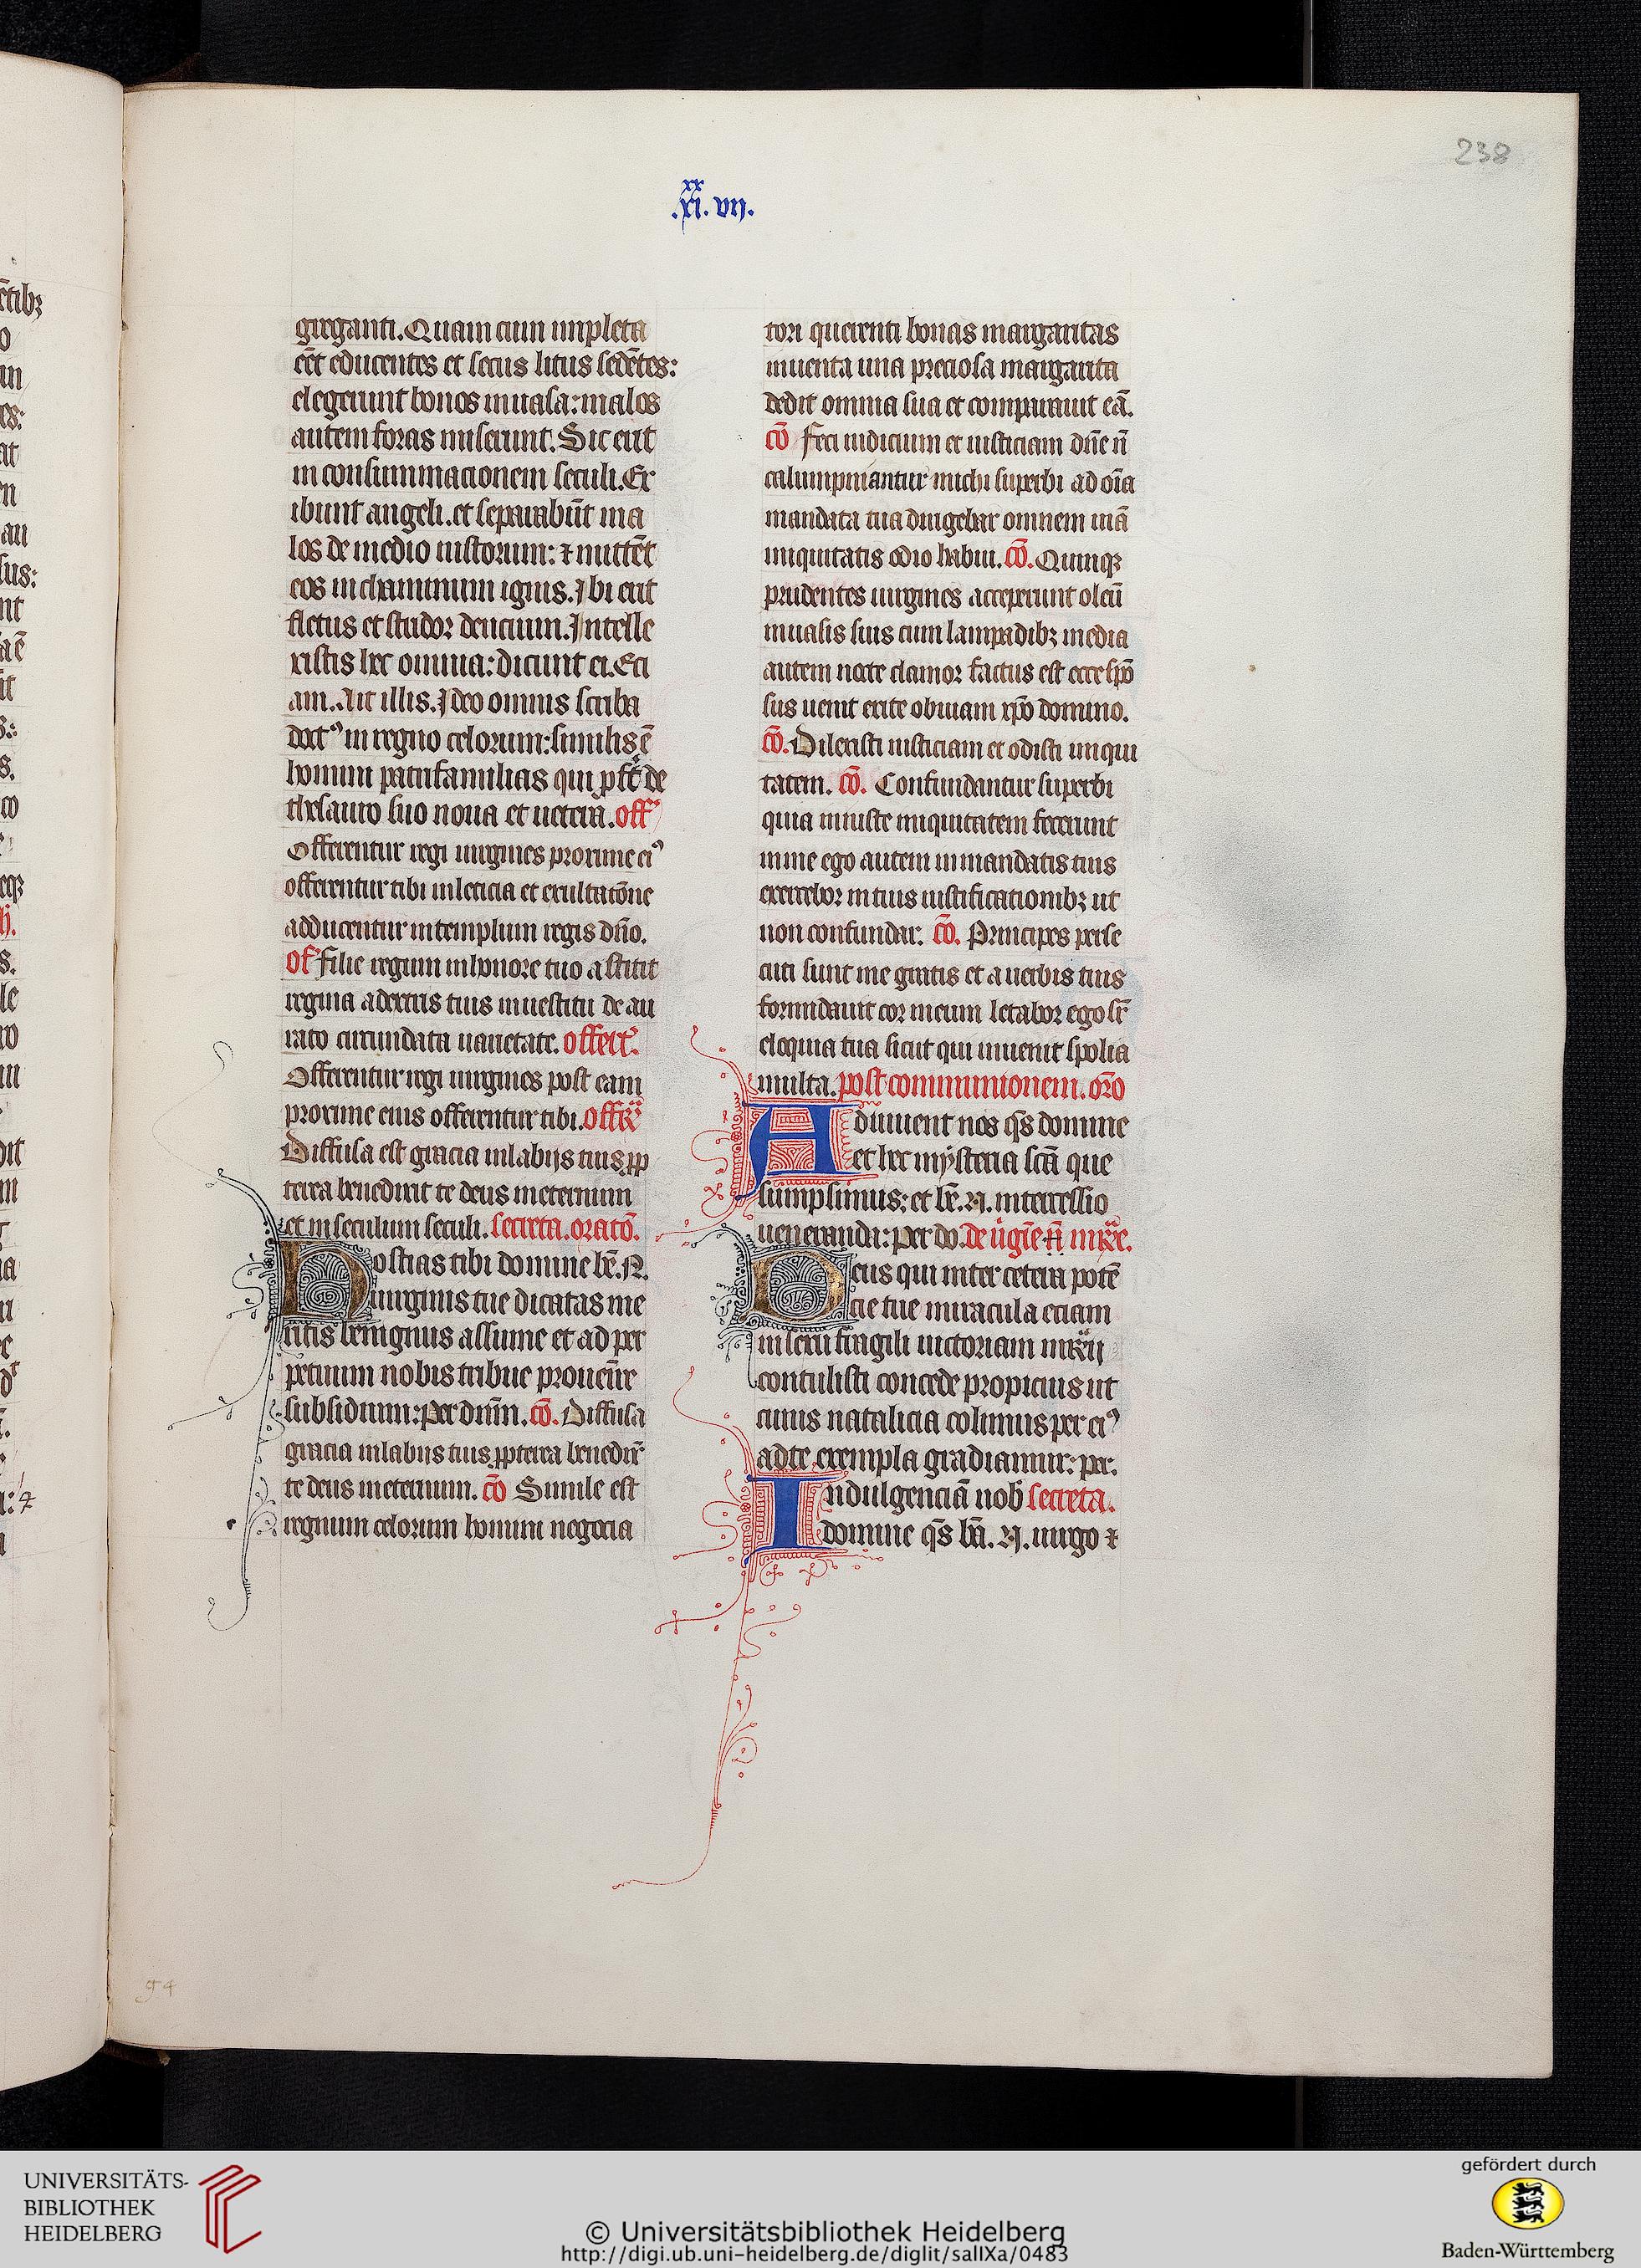 238
xx
.xi. vij.
greganti. Quam cum impleta
eēt educentes et secus litus sedētes:
elegerunt bonos in uasa: malos
autem foras miserunt. Sic erit
in consummacionem seculi. Ex
ibunt angeli. et separabūt ma
los de medio iustorum: ⁊ mittēt
eos in chaminum ignis. Ibi erit
fletus et stridor dencium. Intelle
xistis hec omnia: dicunt ei. Eci
am. Ait illis. Ideo omnis scriba
doctꝰ in regno celorum: similis ē
homini patrifamilias qui ꝓfert de
thesauro suo noua et uetera. off
Offerentur regi uirgines proxime eiꝰ
offerentur tibi in leticia et exultatōne
adducentur in templum regis dn̄o.
Of filie regum in honore tuo astitit
regina a dextris tuis in uestitu de au
rato circumdata uarietate. offert.
Offerentur regi uirgines post eam
proxime eius offerentur tibi. offr̄
Diffusa est gracia in labijs tuis ꝓp
terea benedixit te deus in eternum
et in seculum seculi. secreta. oratō.
Hostias tibi domine bē. N.
uirginis tue dicatas me
ritis benignus assume et ad per
petuum nobis tribue prouenire
subsidium: Per dn̄m. cō. Diffusa
gracia in labijs tuis ꝓpterea benedix̄
te deus in eternum. cō Simile est
regnum celorum homini negocia
tori querenti bonas margaritas
inuenta una preciosa margarita
dedit omnia sua et comparauit eā.
cō Feci iudicium et iusticiam dn̄e n̄
calumpniantur michi superbi ad oīa
mandata tua dirigebar omnem uiā
iniquitatis odio habui. cō. Quinqꝫ
prudentes uirgines acceperunt oleū
in uasis suis cum lampadibꝫ media
autem nocte clamor factus est ecce spō
sus uenit exite obuiam xp̄o domino.
cō. Dilexisti iusticiam et odisti iniqui
tatem. cō. Confundantur superbi
quia iniuste iniquitatem fecerunt
in me ego autem in mandatis tuis
exercebor in tuis iustificationibꝫ ut
non confundar. cō. Principes perse
cuti sunt me gratis et a uerbis tuis
formidauit cor meum letabor ego sr̄
eloquia tua sicut qui inuenit spolia
multa. post communionem. oro
Adiuuent nos qs̄ domine
et hec mysteria scā que
sumpsimus: et bē. N. intercessio
ueneranda: Per do. de ūgīe n̄ mr̄e.
Deus qui inter cetera potē
cie tue miracula eciam
in sexu fragili uictoriam mr̄ij
contulisti concede propicius ut
cuius natalicia colimus per eiꝰ
ad te exempla gradiamur: per.
Indulgenciā nob̄ secreta.
domine qs̄ bā. N. uirgo ⁊
94
UNIVERSITÄTS-
BIBLIOTHEK
HEIDELBERG
© Universitätsbibliothek Heidelberg
http://digi.ub.uni-heidelberg.de/diglit/salIXa/0483
gefördert durch
Baden-Württemberg